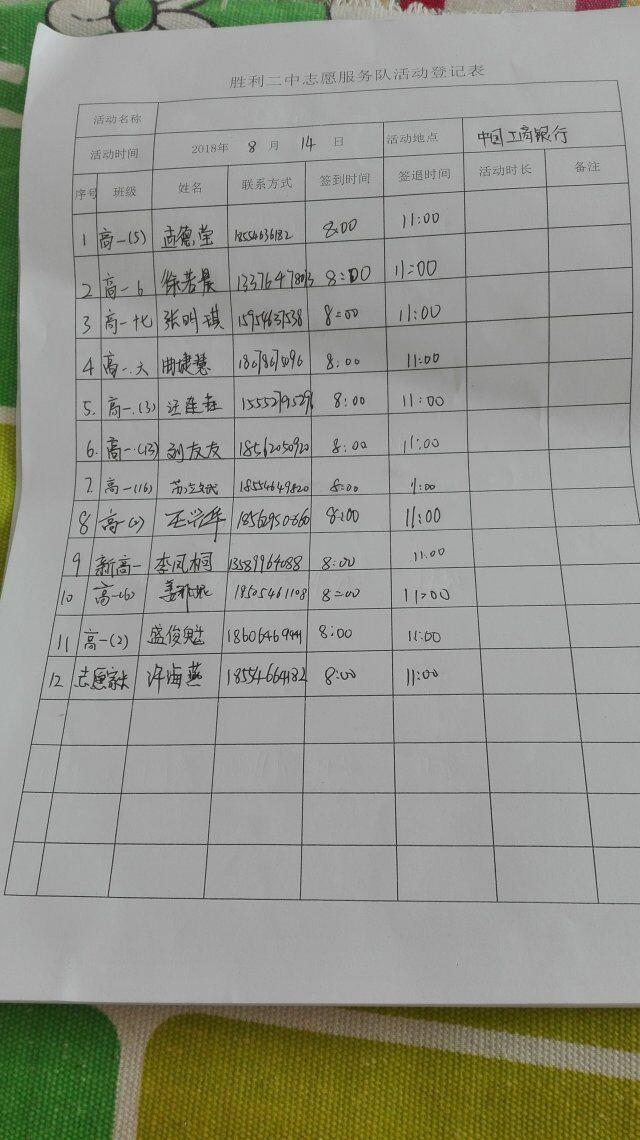 胜利二中志愿服务队活动登记表
活动名称
活动时间 2018年 8 月 14 日 活动地点 中国工商银行
序号 班级 姓名 联系方式 签到时间 签退时间 活动时长 备注
1 高一(5) 高德莹 18554636182 8:00 11:00
2 高一6 徐若晨 8:00 11:00
3 高一七 张明琪 15954637538 8:00 11:00
4 高一.六 曲婕慧 8:00 11:00
5. 高一.(3) 8:00 11:00
6. 高一.(13) 刘友友 18562050920 8:00 11:00
7. 高一(16) 18554649820 8:00 11:00
8 高一(2) 王兴华 8:00 11:00
9 新高一 李凤桐 13589964088 8:00 11:00
10 高一(6) 18505461108 8:00 11:00
11 高一(2) 盛俊魁 8:00 11:00
12 志愿家长 许海燕 18554664182 8:00 11:00